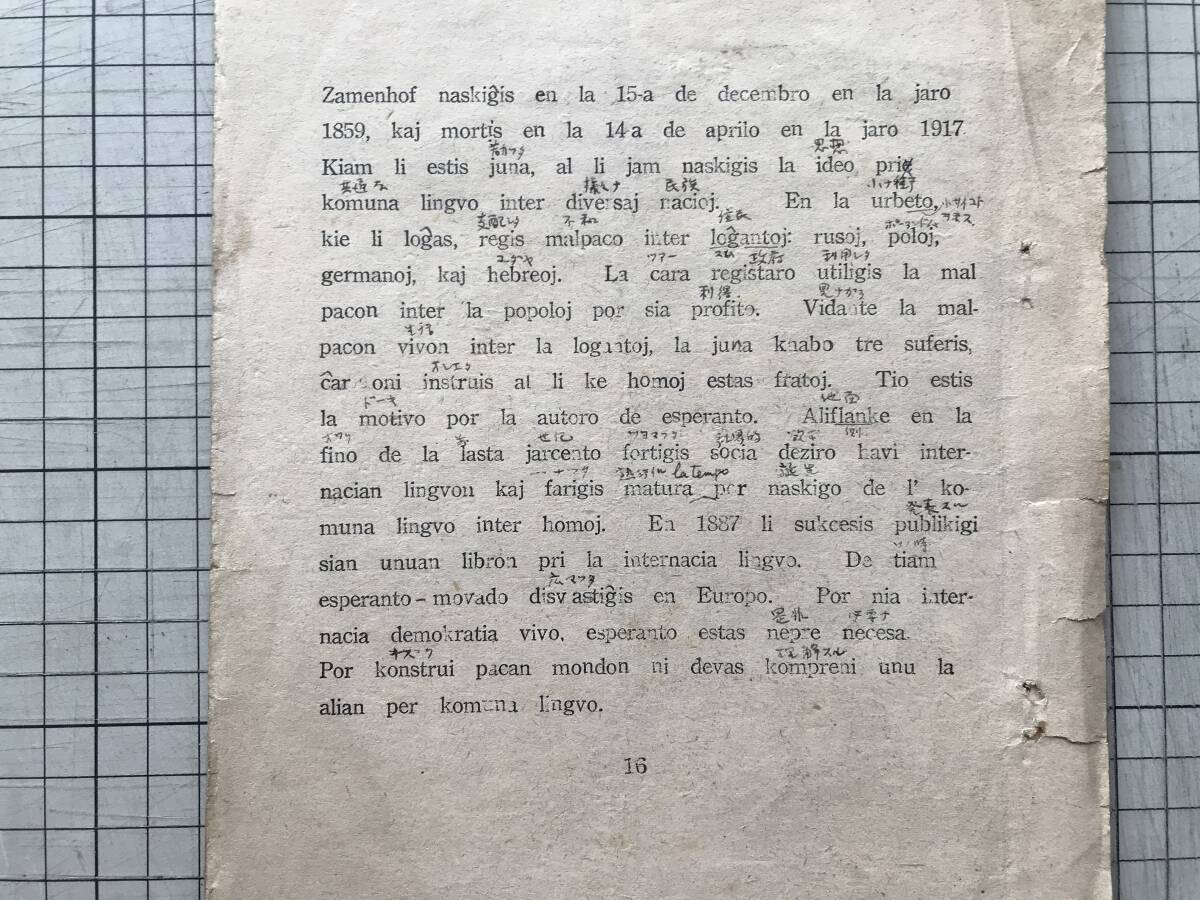 Zamenhof naskiĝis en la 15-a de decembro en la jaro
1859, kaj mortis en la 14-a de aprilo en la jaro 1917
若カッタ 思想
Kiam li estis juna, al li jam naskigis la ideo pri
共通ナ 様々ナ 民族 小ナ街
komuna lingvo inter diversaj nacioj. En la urbeto,
支配シタ 不和 住民
kie li loĝas, regis malpaco inter loĝantoj: rusoj, poloj,
ユダヤ ツアー 政府 利用シタ
germanoj, kaj hebreoj. La cara registaro utiligis la mal
利得
pacon inter la popoloj por sia profito. Vidante la mal-
pacon vivon inter la logantoj, la juna knabo tre suferis,
ĉar oni instruis al li ke homoj estas fratoj. Tio estis
ドーキ 地面
la motivo por la autoro de esperanto. Aliflanke en la
世紀
fino de la lasta jarcento fortigis socia deziro havi inter-
la tempo 誕生
nacian lingvon kaj farigis matura por naskigo de l' ko-
発表スル
muna lingvo inter homoj. En 1887 li sukcesis publikigi
sian unuan libron pri la internacia lingvo. De tiam
広マッタ
esperanto-movado disvastiĝis en Europo. Por nia inter-
是非
nacia demokratia vivo, esperanto estas nepre necesa.
キズク 理解スル
Por konstrui pacan mondon ni devas kompreni unu la
alian per komuna lingvo.
16